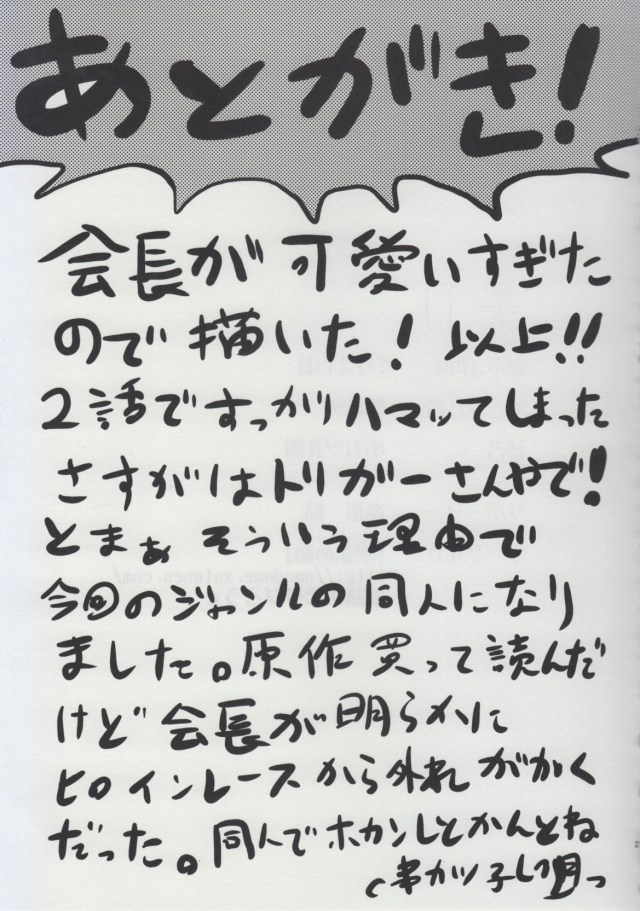 あとがき!
会長が可愛いすぎた
ので描いた! 以上!!
2話ですっかりハマッてしまった
さすがはトリガーさんやで!
とまぁそういう理由で
今回のジャンルの同人になり
ました。原作買って読んだ
けど会長が明らかに
ヒロインレースから外れがかく
だった。同人でホカンしとかんとね
串カツ子